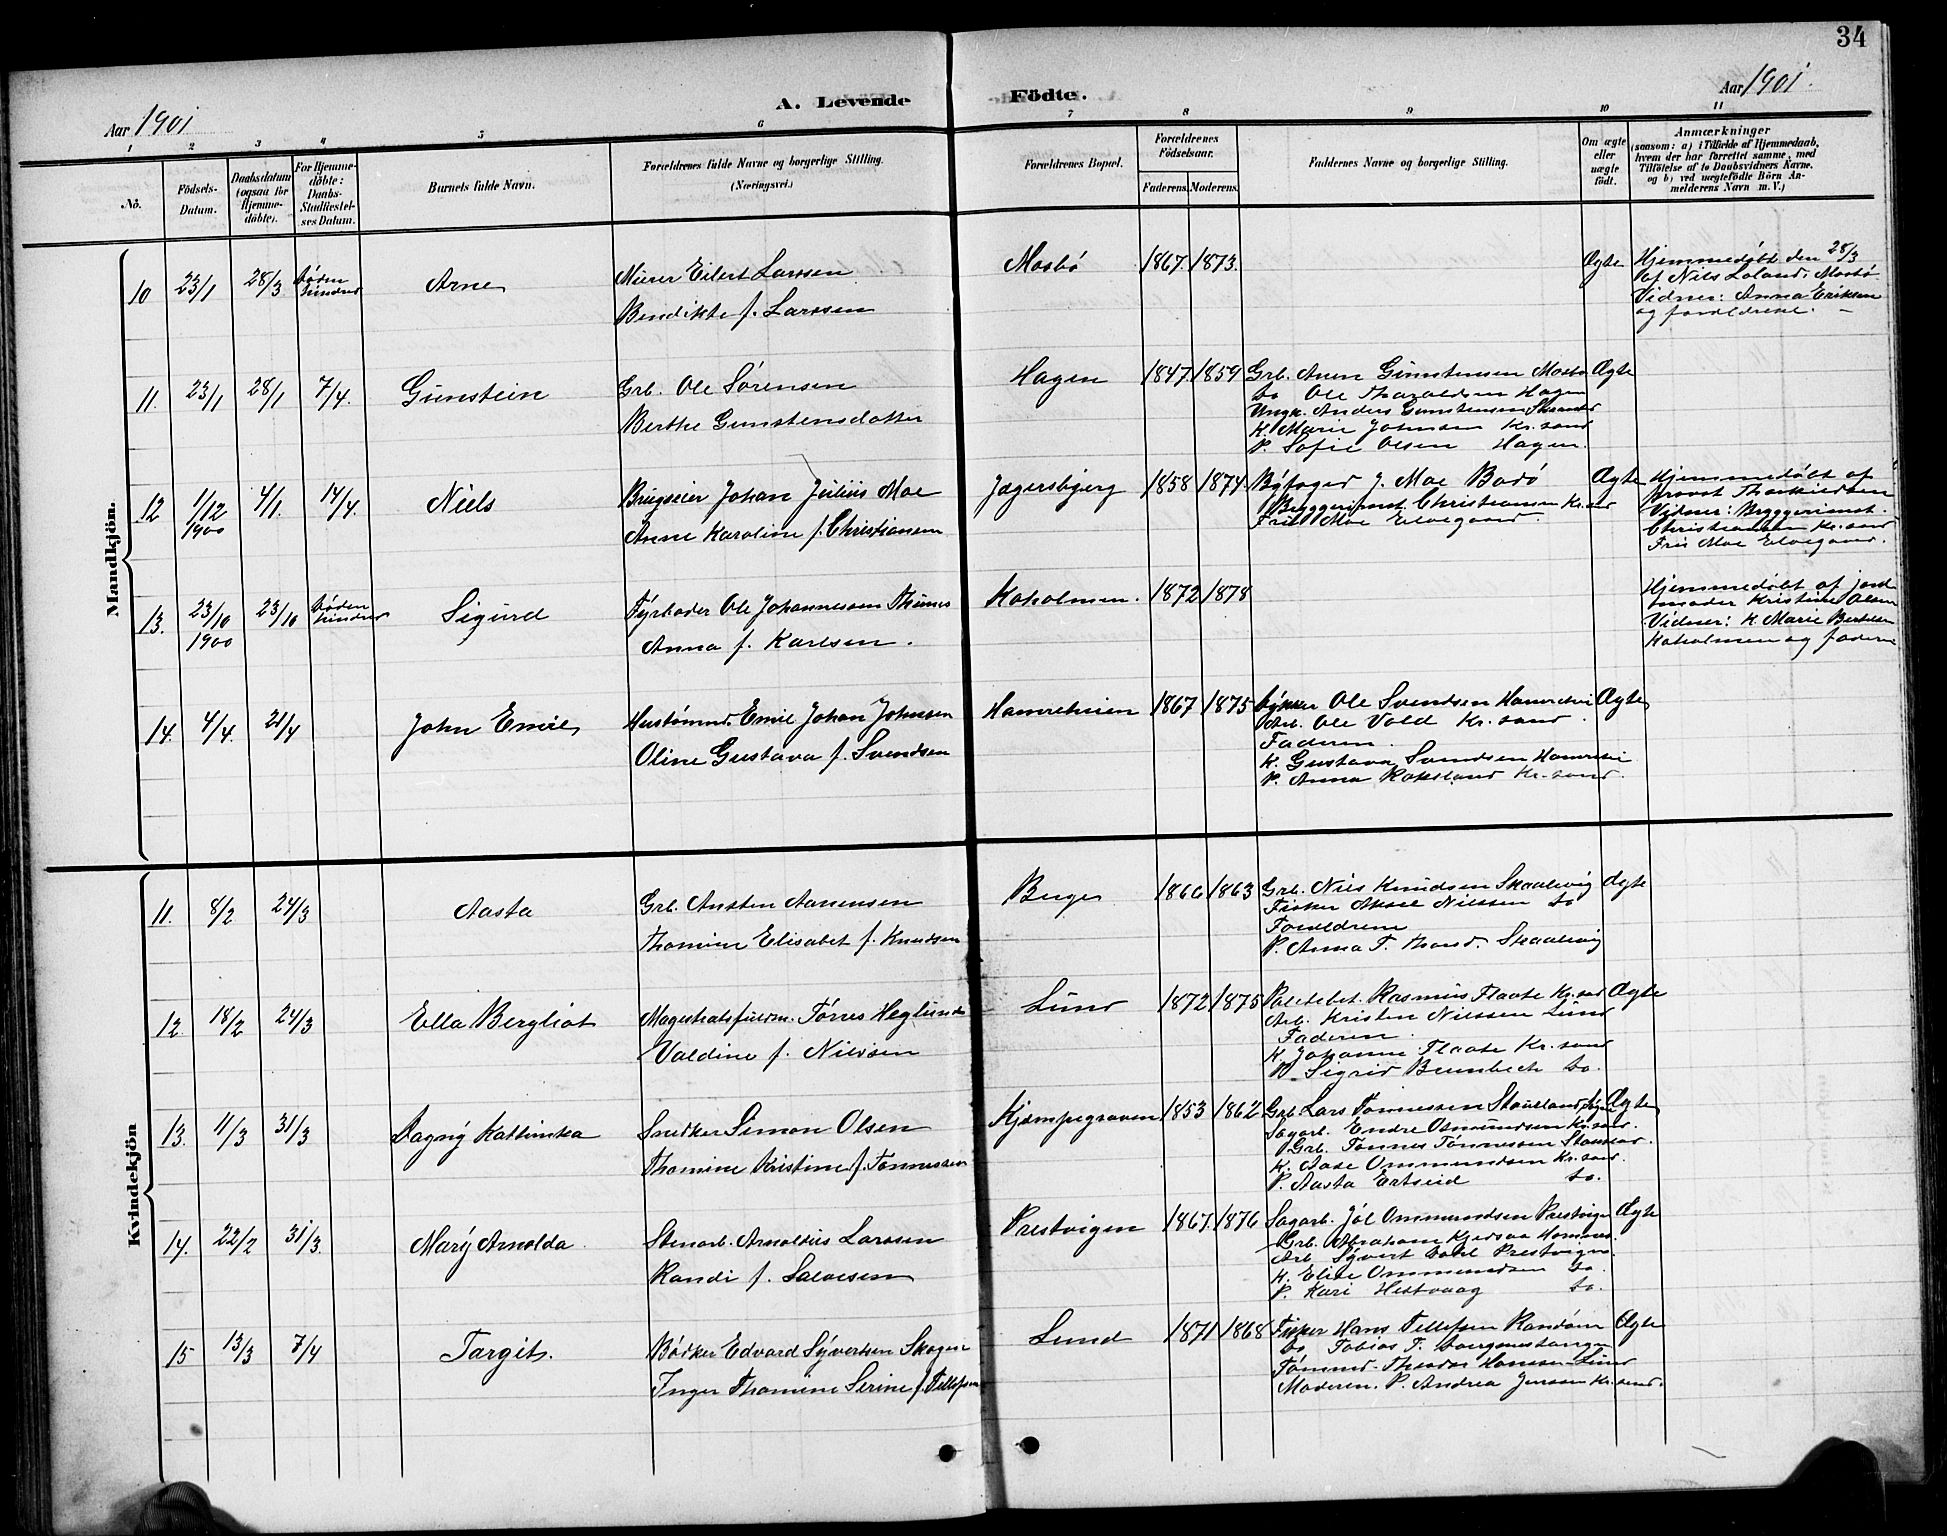 34
Aar 1901
A. Levende Födte.
Aar 1901.
1 2 3 4 5 6 7 8 9 10 11
No.
Födsels-
Datum.
Daabsdatum
(ogsaa for
Hjemme-
döbte).
For Hjemme-
döbte:
Daabs-
Stadfæstel-
ses Datum.
Barnets fulde Navn.
Forældrenes fulde Navne og borgerlige Stilling.
(Næringsvei.)
Forældrenes Bopæl.
Forældrenes
Födselsaar.
Faderens. Moderens.
Faddernes Navne og borgerlige Stilling.
Om ægte
eller
uægte
födt.
Anmærkninger
(saasom: a) i Tilfælde af Hjemmedaab,
hvem der har forrettet samme, med
Tilföielse af to Daabsvidners Navne,
og b) ved uægtefödte Börn An-
melderens Navn m. V.)
Mandkjön.
10 23/1 28/3 Døden hindrer
Arne
Murer Eilert Larssen
Bendikte f. Larssen
Mosbø
1867. 1873.
Ægte
Hjemmedøbt den 28/3
af Nils Loland, Mosbø
Vidner: Anna Eriksen
og forældrene.
11. 23/1 28/1 7/4.
Gunstein
Grb. Ole Sørensen
Berthe Gunstensdatter
Hagen
1847. 1859
Grb. Anen Gunstensen Mosbø
Do Ole Thorvaldsen Hagen
Ungk. Anders Gunstensen
K. Marie Johnsen Kr.sand
P. Sofie Olsen Hagen.
Ægte
12 1/12 1900 4/1. 14/4.
Niels
Brugseier Johan Julius Moe
Anne Karoline f. Christiansen
Jegersbjerg
1858 1874.
Byfoged J. Moe Bodø
Bryggerimst. Christiansen Kr.sand
Frk. Moe Elvegaard.
Ægte
Hjemmedøbt af
Provst
Vidner: Bryggerimst.
Christiansen Kr.sand
Frk Moe Elvegaard.
13. 23/10 1900 23/10 Døden hindrer
Sigurd
Fyrbøder Ole Johannesen Thunes
Anna f. Karlsen.
Koholmen.
1872 1878
Hjemmedøbt af jord-
moder Kristine Olsen
Vidner: K. Marie Bertelsen
Koholmen og faderen
14. 4/4. 21/4
John Emil
Hustømmd. Emil Johan Johnsen
Oline Gustava f. Svendsen
Hamreheien
1867 1875
Ole Svendsen Hamreheie
Arb. Ole Vold Kr.sand.
Faderen.
K. Gustava Svendsen Hamreheie
P. Anna Roksland Kr.sand.
Ægte
Kvindekjön
11. 8/2 24/3
Aasta
Grb. Ansten Aanensen
Thomine Elisabet f. Knudsen
Berge
1866 1863
Grb. Nils Knudsen Skaalevig
Fisker Aksel Nilssen Do
Forældrene
P. Anna T. Skaalevig
Ægte
12. 18/2 24/3
Ella Bergliot
Magistratsfuldm. Tørres Heglund
Valdine f. Nilssen
Lund
1872 1875
Rasmus Flaate Kr.sand
Arb. Kristen Nilssen Lund
Faderen
K. Johanne Flaate Kr.sand
P. Sigrid Do.
Ægte
13. 11/3 31/3
Dagny Kathinka
Snedker Simon Olsen
Thomine Kristine f. Tønnessen
Kjempegraven
1853 1862
Grb. Lars Tønnessen
Sagarb. Endre Osmundsen Kr.sand.
Grb. Tønnes Tønnessen
K. Aase Ommundsen Kr.sand.
P. Aasta Ertseid Do.
Ægte
14. 22/2 31/3.
Mary Arnolda
Stenarb. Arnoldus Larssen
Randi f. Salvesen
Prestvigen
1867. 1876
Sagarb. Jol Ommundsen Prestvigen
Grb. Abraham
Arb. Syvert Dahl Prestvigen
K. Elise Ommundsen Do.
P. Kari Hestvaag Do.
Ægte
15 13/3 7/4
Targit.
Bødker Edvard Syvertsen Skogen
Inger Thomine Serine f. Tellefsen
Lund
1871 1868
Fisker Hans Tellefsen Randøen
Do Tobias T.
Tømmd. Theodor Hansen Lund
Moderen. P. Andrea Jenssen Kr.sand.
Ægte